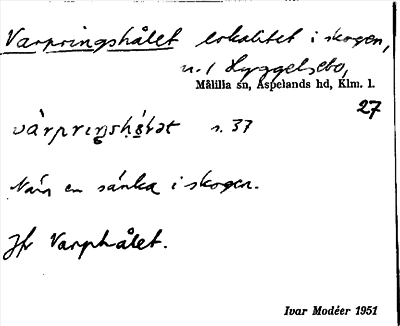 Varpringshålet lokalitet i skogen,
u. / Hyggelsebo,
Målilla sn, Aspelands hd, Klm. l.
27
s. 37
Näm en sänka i skogen.
Jfr Varphålet.
Ivar Modéer 1951